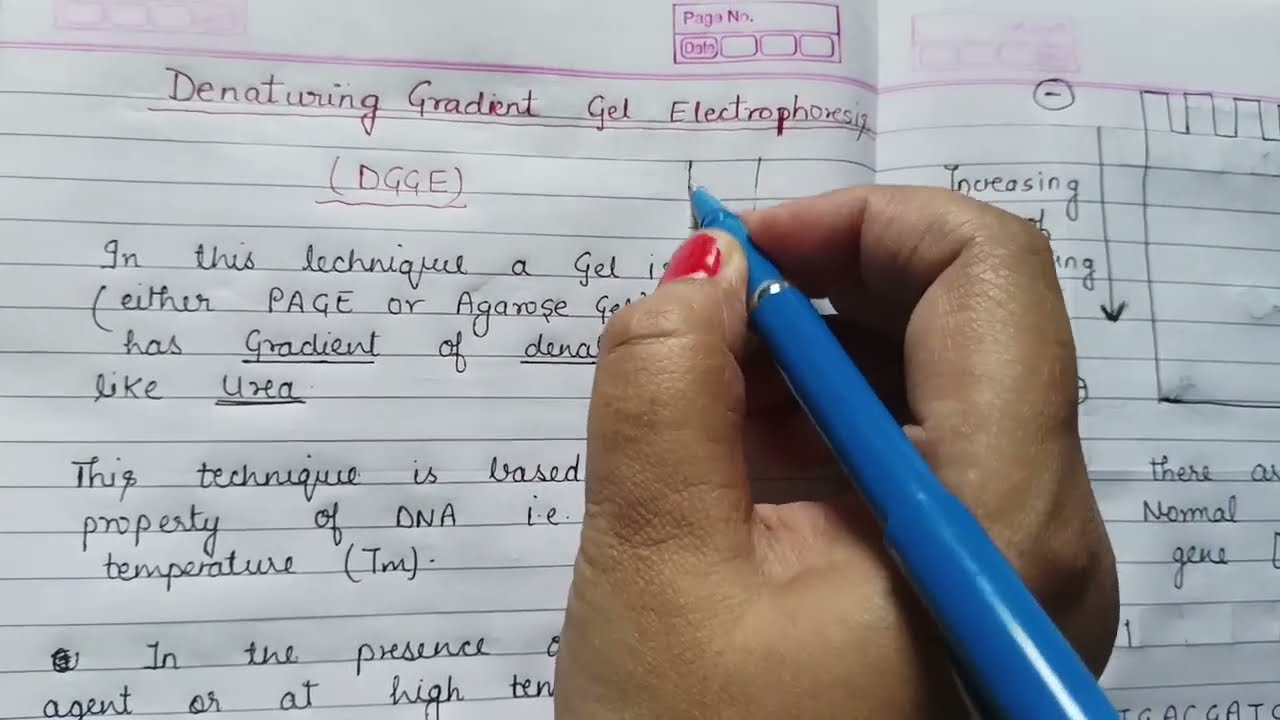 Page No.
Date
Denaturing Gradient Gel Electrophoresis
(DGGE)
In this technique a Gel is
(either PAGE or Agarose Gel
has Gradient of
like Urea.
This technique is based
property of DNA i.e.
temperature (Tm).
In the presence
agent or at high
Increasing
of
there
Normal
gene